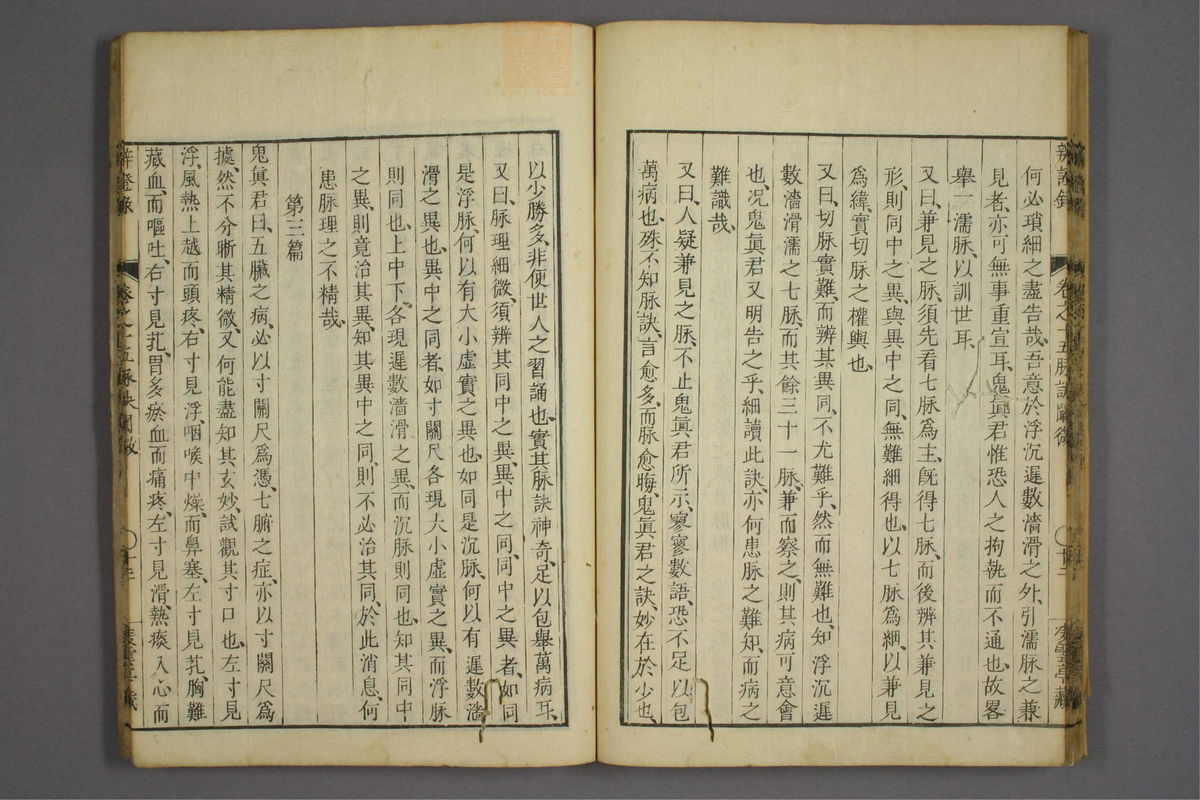 何必瑣細之盡告哉、吾意於浮沉遲數濇滑之外、引濡脉之兼
見者、亦可無事重宣耳、鬼眞君惟恐人之拘執而不通也、故畧
舉一濡脉、以訓世耳、
又曰、兼見之脉、須先看七脉爲主、旣得七脉、而後辨其兼見之
形、則同中之異、與異中之同、無難細得也、以七脉爲綱、以兼見
爲緯、實切脉之權輿也、
又曰、切脉實難、而辨其異同、不尤難乎、然而無難也、知浮沉遲
數濇滑濡之七脉、而其餘三十一脉、兼而察之、則其病可意會
也、况鬼眞君又明告之乎、細讀此訣、亦何患脉之難知、而病之
難識哉、
又曰、人疑兼見之脉、不止鬼眞君所示、寥寥數語、恐不足以包
萬病也、殊不知脉訣、言愈多、而脉愈晦、鬼眞君之訣、妙在於少也、
以少勝多、非便世人之習誦也、實其脉訣神奇、足以包舉萬病耳、
又曰、脉理細微、須辨其同中之異、異中之同、同中之異者、如同
是浮脉、何以有大小虛實之異也、如同是沉脉、何以有遲數濇
滑之異也、異中之同者、如寸關尺各現大小虛實之異、而浮脉
則同也、上中下、各現遲數濇滑之異、而沉脉則同也、知其同中
之異、則竟治其異、知其異中之同、則不必治其同、於此消息、何
患脉理之不精哉、
第三篇
鬼眞君曰、五臟之病、必以寸關尺爲憑、七腑之症、亦以寸關尺爲
據、然不分晰其精微、又何能盡知其玄妙、試觀其寸口也、左寸見
浮、風熱上越而頭疼、右寸見浮、咽喉中燥、而鼻塞、左寸見芤、胸難
藏血、而嘔吐、右寸見芤、胃多瘀血而痛疼、左寸見滑、熱痰入心、而